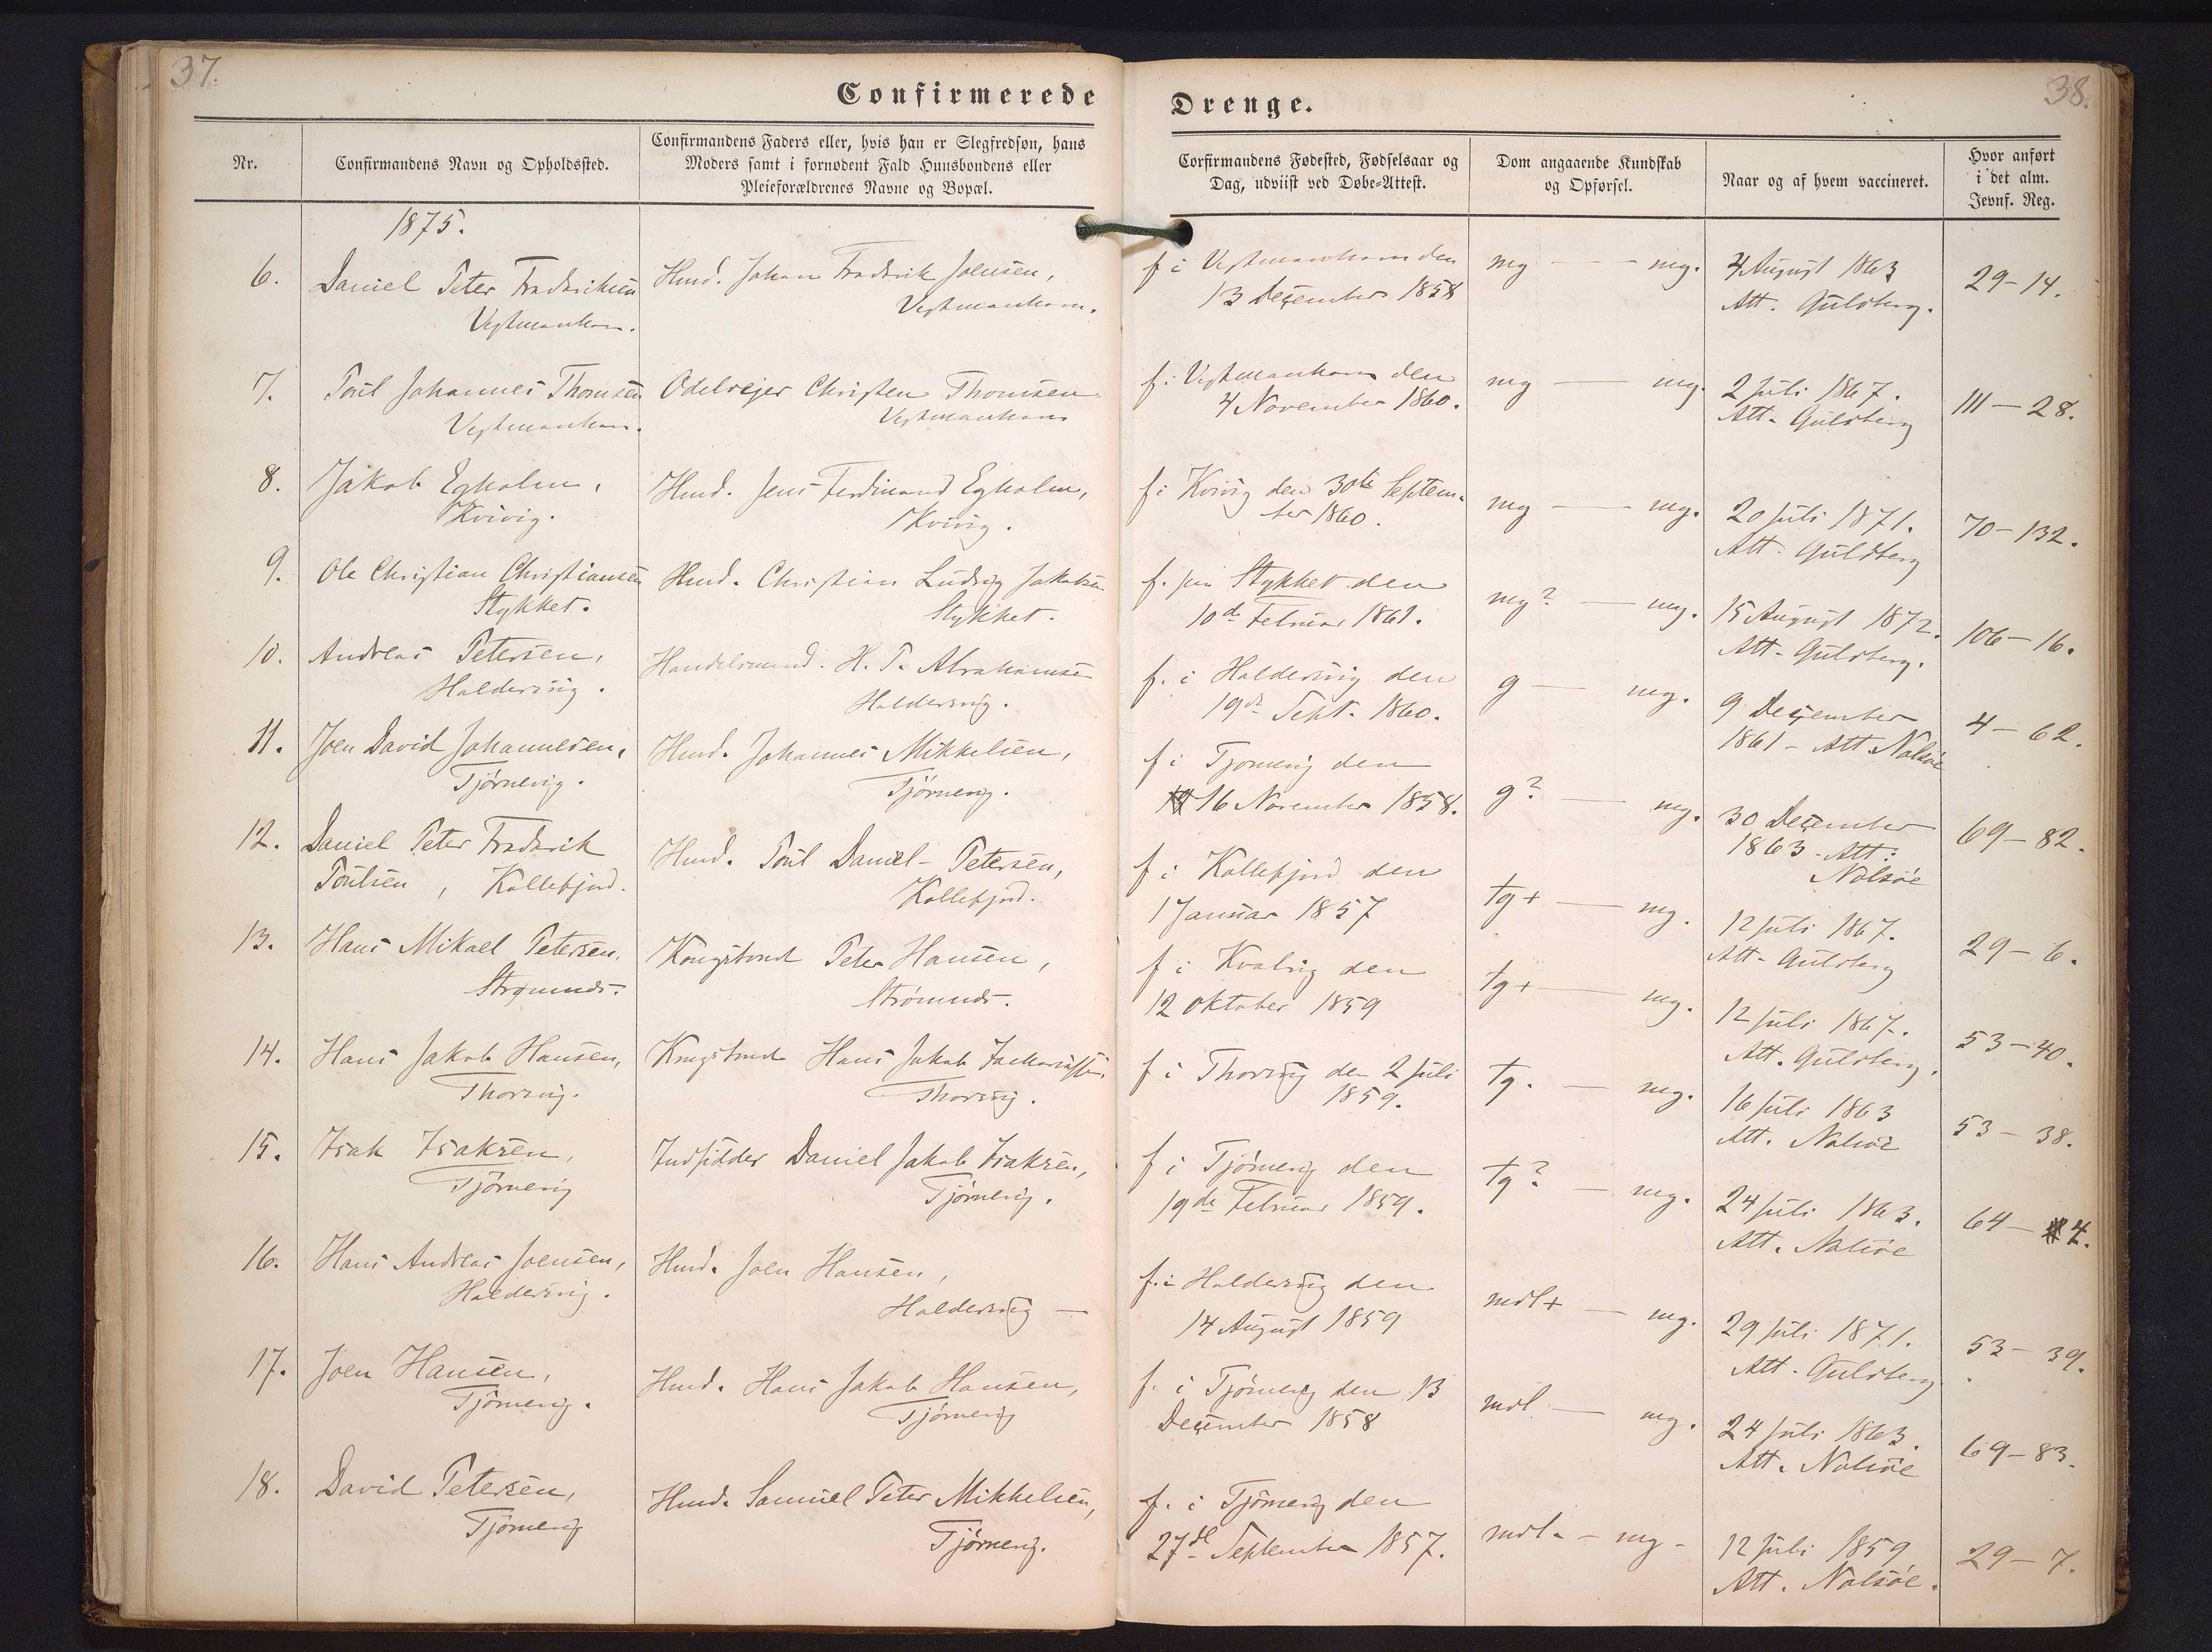 37.
38.
Confirmerede
Drenge.
Nr.
Confirmandens Navn og Opholdssted.
Confirmandens Faders eller, hvis han er Slegfredsøn, hans
Moders samt i fornødent Fald Huusbondens eller
Pleieforældrenes Navne og Bopæl.
Corfirmandens Fødested, Fødselsaar og
Dag, udviist ved Døbe-Attest.
Dom angaaende Kundskab
og Opførsel.
Naar og af hvem vaccineret.
Hvor anført
i det alm.
Jevnf. Reg.
1875.
6.
Daniel Peter Frederiksen
Vestmanhavn.
Hmd. Johan Frederik Joensen,
Vestmanhavn.
f i Vestmanhavn den
13 December 1858
mg — — mg.
4 August 1863
Att. Guldberg.
29-14.
7.
Poul Johannes Thomsen
Vestmanhavn.
Odelsejer Christen Thomsen
Vestmanhavn
f. i Vestmanhavn den
4 November 1860.
mg — mg.
2 Juli 1867.
Att. Guldberg
111-28.
8.
Jakob Egholm,
Kvivig.
Hmd. Jens Ferdinand Egholm,
Kvivig.
f i Kvivig den 30te Septem-
ber 1860.
mg — mg.
20 Juli 1871.
Att. Guldberg
70-132.
9.
Ole Christian Christiansen
Stykket.
Hmd. Christian Ludvig Jakobsen
Stykket.
f. paa Stykket den
10de Februar 1861.
mg? — mg.
15 August 1872.
Att. Guldberg.
106-16.
10.
Andreas Petersen,
Haldersvig.
Handelsmand. H. P. Abrahamsen
Haldersvig.
f. i Haldersvig den
19de Sept. 1860.
g — mg.
9 December
1861 - Att. Nolsøe
4-62.
11.
Joen David Johannesen,
Tjørnevig.
Hmd. Johannes Mikkelsen,
Tjørnevig.
f i Tjørnevig den
16 November 1858.
g? — mg.
30 December
1863 - Att:
Nolsøe
69-82.
12.
Daniel Peter Frederik
Poulsen, Kollefjord.
Hmd. Poul Daniel Petersen,
Kollefjord.
f i Kollefjord den
1 Januar 1857
tg+ — mg.
12 Juli 1867.
Att. Guldberg
29-6.
13.
Hans Mikael Petersen,
Strømnæs.
Kongsbond Peter Hansen,
Strømnæs.
f i Kvalvig den
12 Oktober 1859
tg+ — mg.
12 Juli 1867.
Att. Guldberg.
53-40.
14.
Hans Jakob Hansen,
Thorsvig.
Kongsbond Hans Jakob Zachariassen,
Thorsvig.
f i Thorsvig den 2 Juli
1859.
tg. — mg.
16 Juli 1863
Att. Nolsøe
53-38.
15.
Isak Isaksen,
Tjørnevig
Indsidder Daniel Jakob Isaksen,
Tjørnevig.
f i Tjørnevig den
19de Februar 1859.
tg? — mg.
24 Juli 1863.
Att. Nolsøe
64- 4.
16.
Hans Andreas Joensen,
Haldersvig.
Hmd. Joen Hansen,
Haldersvig —
f. i Haldersvig den
14 August 1859
mdl+ — mg.
29 Juli 1871.
Att. Guldberg
53-39.
17.
Joen Hansen,
Tjørnevig.
Hmd. Hans Jakob Hansen,
Tjørnevig
f. i Tjørnevig den 13
December 1858
mdl — mg.
24 Juli 1863.
Att. Nolsøe
69-83.
18.
David Petersen,
Tjørnevig
Hmd. Samuel Peter Mikkelsen,
Tjørnevig.
f. i Tjørnevig den
27de September 1857.
mdl. - mg -
12 Juli 1859
Att. Nolsøe.
29-7.